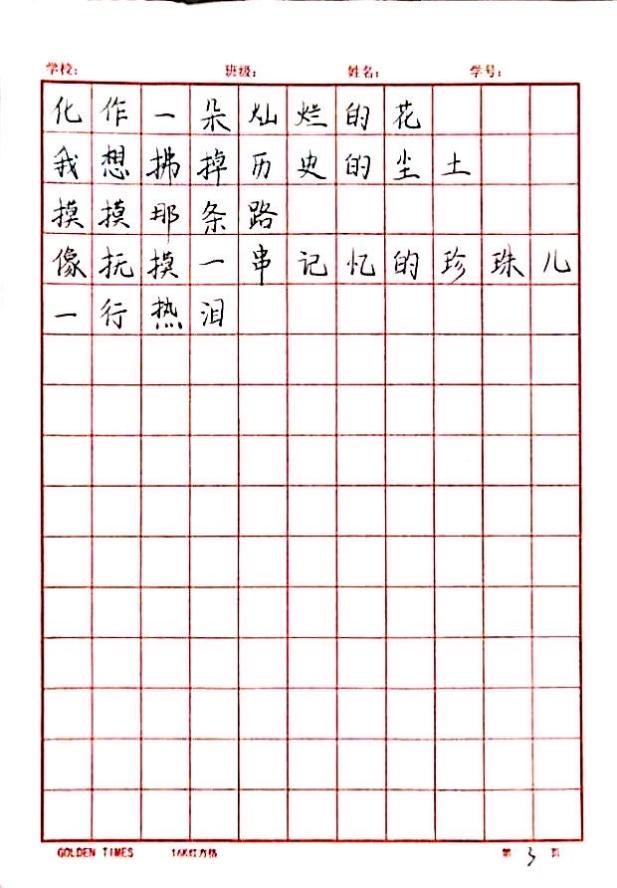 学校： 班级： 姓名： 学号：
化作一朵灿烂的花
我想拂掉历史的尘土
摸摸那条路
像抚摸一串记忆的珍珠儿
一行热泪
GOLDEN TIMES 16K红方格 第 3 页